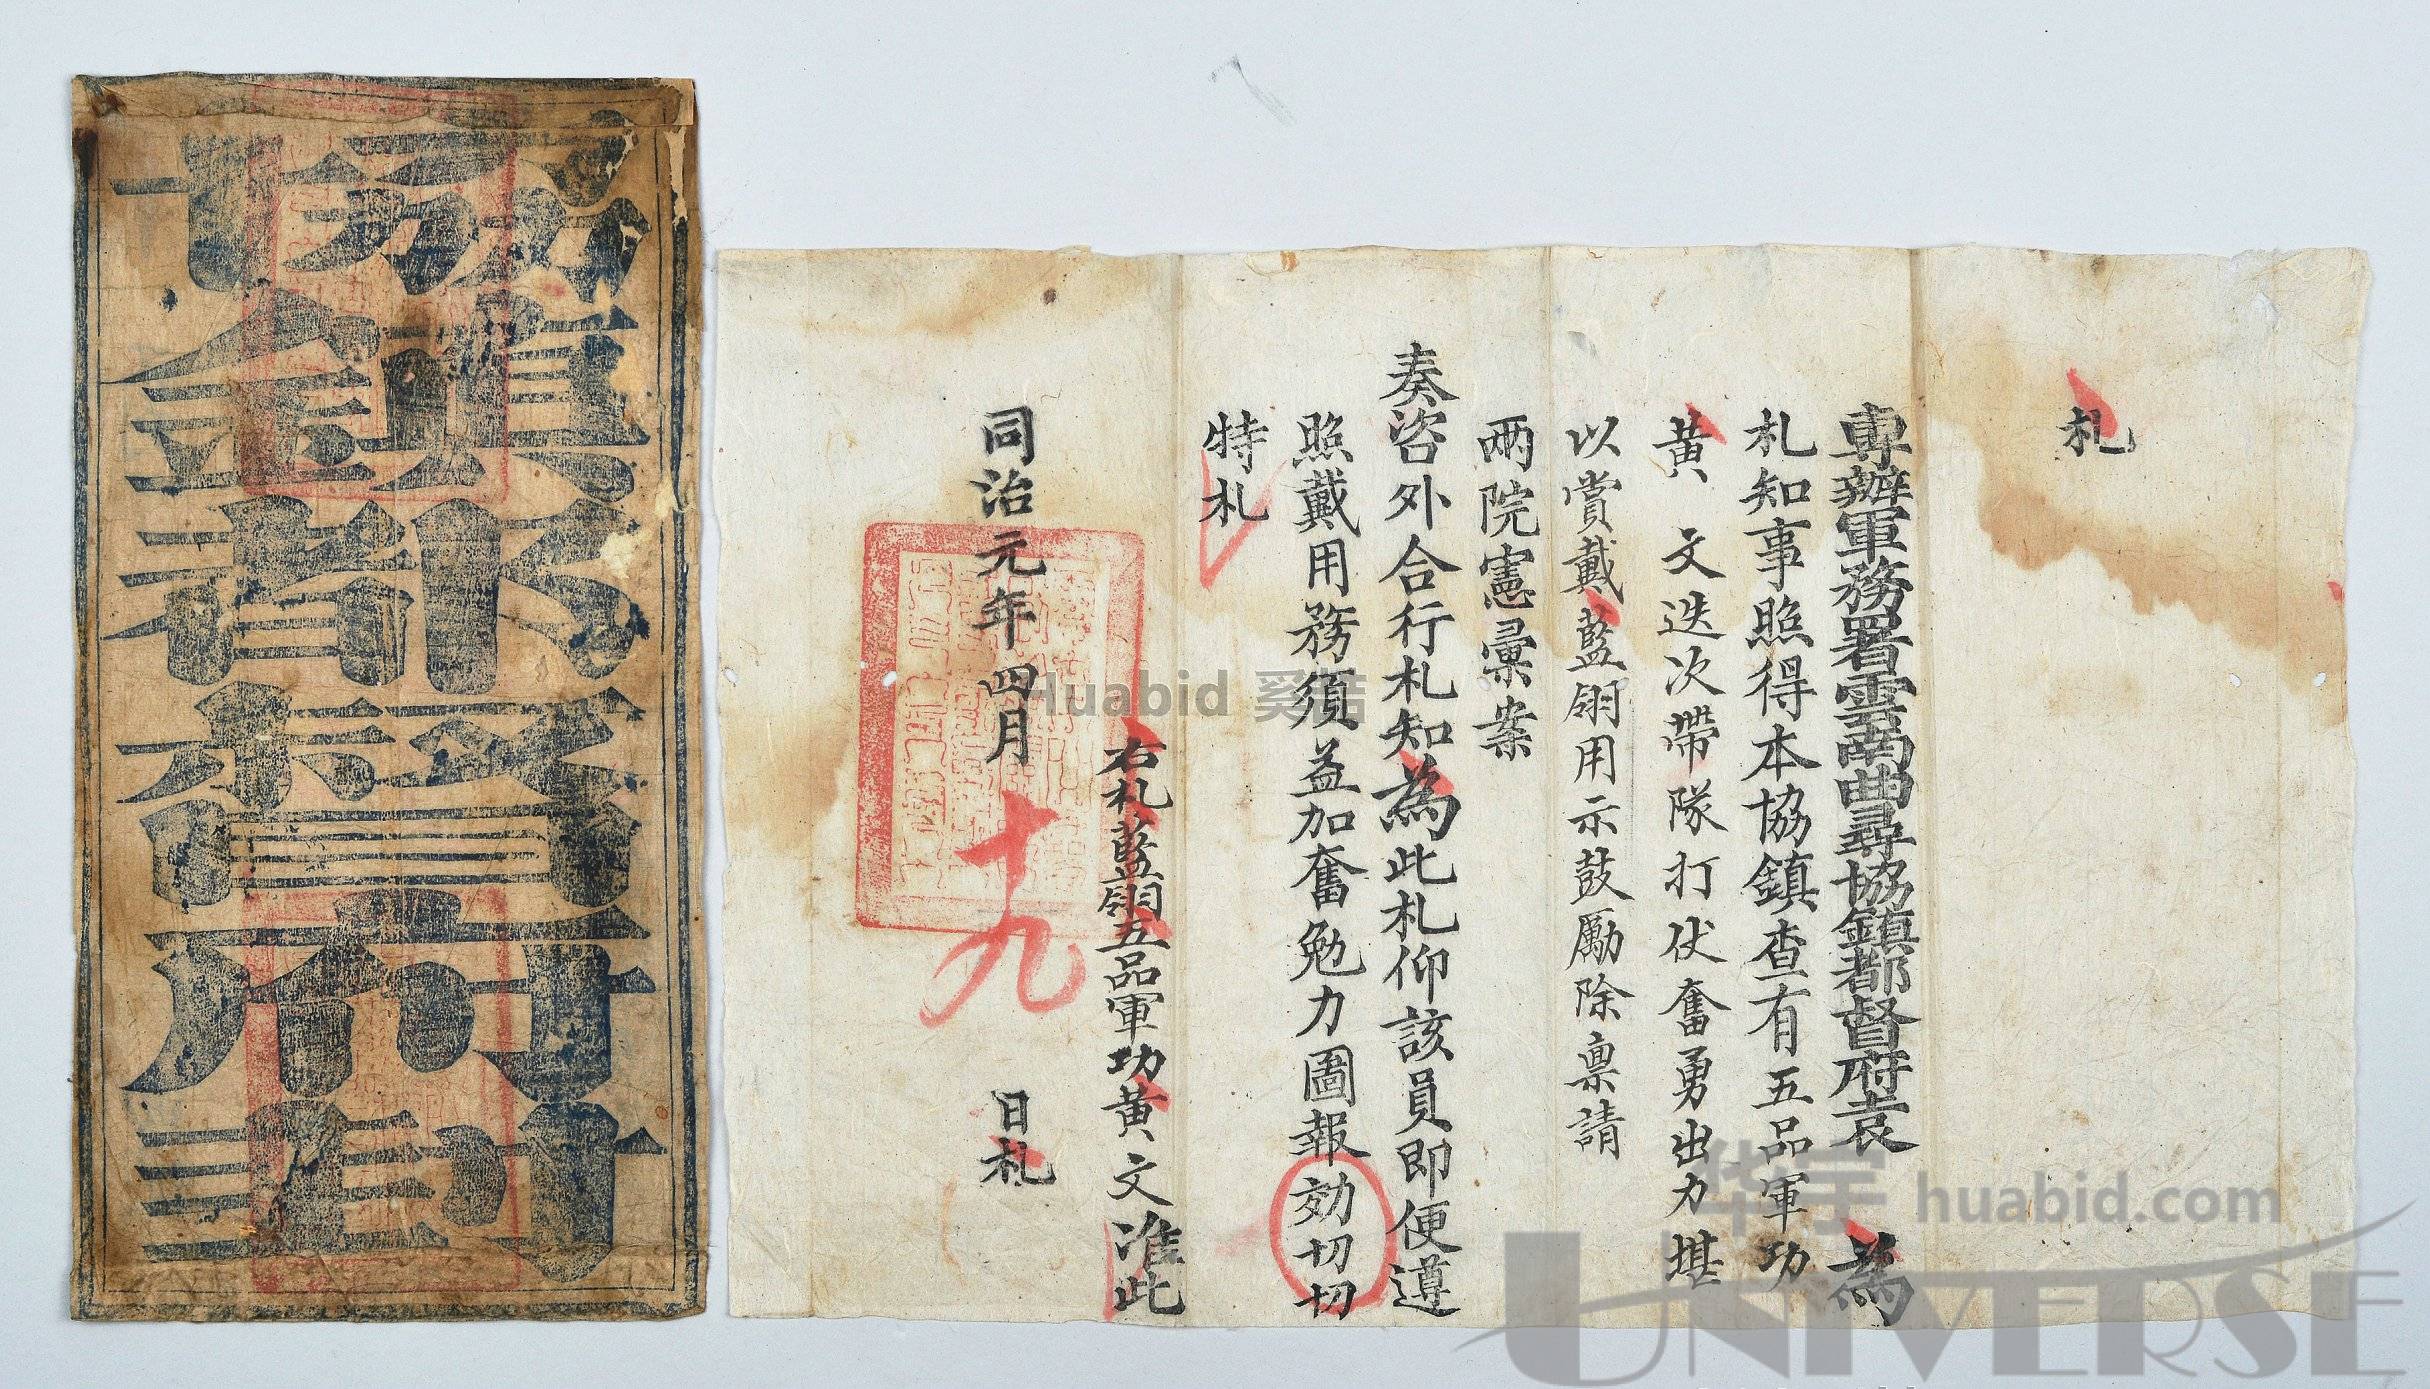 札
專辦軍務署雲南曲尋協鎮都督府袁 為
札知事照得本協鎮查有五品軍功
黄 文迭次帶隊打仗奮勇出力堪
以賞戴藍翎用示鼓勵除稟請
兩院憲彙案
奏咨外合行札知為此札仰該員即便遵
照戴用務須益加奮勉力圖報効切切
特札
右札藍翎五品軍功黄文准此
同治元年四月十九日札
協鎮都督府封
Huabid
华宇 huabid.com
UNIVERSE